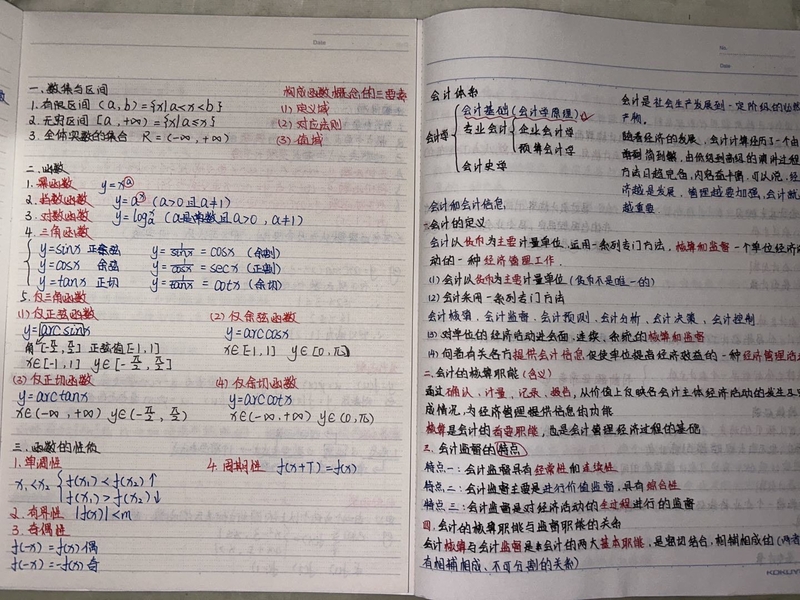 Date
一、数集与区间
构成函数概念的三要素
1.有限区间 (a,b)={x|a<x<b}
(1)定义域
2.无穷区间 [a,+∞)={x|a≤x}
(2)对应法则
3.全体实数的集合 R=(-∞,+∞)
(3)值域
二、函数
1.幂函数 y=xᵃ
2.指数函数 y=aˣ (a>0且a≠1)
3.对数函数 y=logₐx (a是常数且a>0,a≠1)
4.三角函数
y=sinx 正弦 y=1/sinx=cscx (余割)
y=cosx 余弦 y=1/cosx=secx (正割)
y=tanx 正切 y=1/tanx=cotx (余切)
5.反三角函数
(1)反正弦函数 (2)反余弦函数
y=arcsinx y=arccosx
角[-π/2,π/2] 正弦值[-1,1] x∈[-1,1] y∈[0,π]
x∈[-1,1] y∈[-π/2,π/2]
(3)反正切函数 (4)反余切函数
y=arctanx y=arccotx
x∈(-∞,+∞) y∈(-π/2,π/2) x∈(-∞,+∞) y∈(0,π)
三、函数的性质
1.单调性 4.周期性 f(x+T)=f(x)
x₁<x₂ { f(x₁)<f(x₂)↑
f(x₁)>f(x₂)↓
2.有界性 |f(x)|<m
3.奇偶性
f(-x)=f(x)偶
f(-x)=-f(x)奇
No.
Date
会计体系
会计学
会计基础(会计学原理)
专业会计 企业会计学
预算会计学
会计史学
会计是社会生产发展到一定阶段的
产物。
随着经济的发展,会计计算经历了一个由
到简到繁,由低级到高级的演进过程
方法日趋完备,内容益丰富,可以说,经
济越是发展,管理越要加强,会计就
越重要
会计和会计信息
一.会计的定义
会计以货币为主要计量单位,运用一系列专门方法,核算和监督一个单位经济
动的一种经济管理工作.
(1)会计以货币为主要计量单位(货币不是唯一的)
(2)会计采用一系列专门方法
会计核算、会计监督、会计预测、会计分析、会计决策、会计控制
(3)对单位的经济活动进全面、连续、系统的核算和监督
(4)向着有关各方提供会计信息促使单位提高经济效益的一种经济管理活
二.会计的核算职能(含义)
通过确认、计量、记录、报告,从价值上反映各会计主体经济活动的发生及完
成情况,为经济管理提供信息的功能
核算是会计的首要职能,也是会计管理经济过程的基础
三.会计监督的特点
特点一:会计监督具有经常性和连续性
特点二:会计监督主要是进行价值监督,具有综合性
特点三:会计监督是对经济活动的全过程进行的监督
四.会计的核算职能与监督职能的关系
会计核算与会计监督是会计的两大基本职能,是密切结合,相辅相成的(两者
有相辅相成、不可分割的关系)
KOKUYO